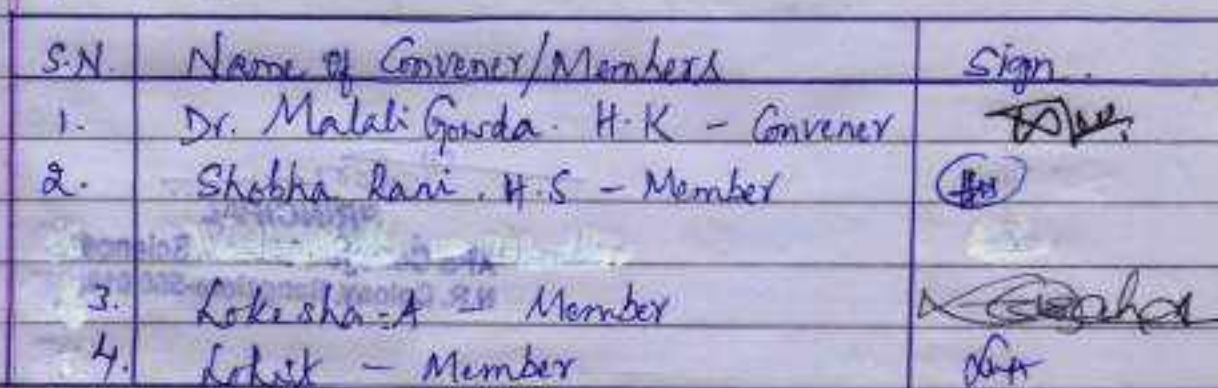 S.N. Name of Convener/Members Sign.
1. Dr. Malali Gowda. H.K - Convener
2. Shobha Rani. H.S - Member
3. Lokesha-A - Member
4. Lohit - Member